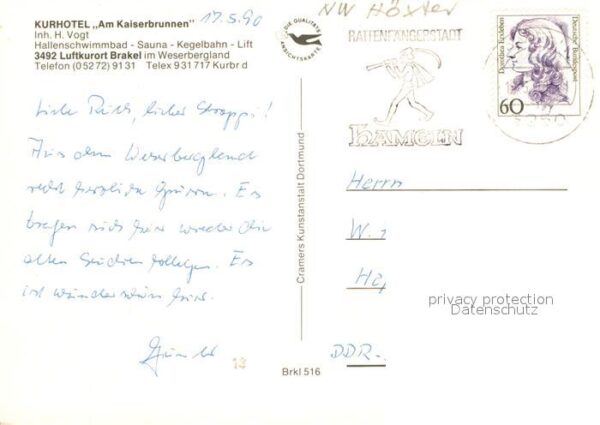 KURHOTEL „Am Kaiserbrunnen"
Inh. H. Vogt
Hallenschwimmbad - Sauna - Kegelbahn - Lift
3492 Luftkurort Brakel im Weserbergland
Telefon (05272) 9131 Telex 931717 Kurbr d
17.5.90
DIE QUALITÄTS
ANSICHTSKARTE
NW Höxter
RATTENFÄNGERSTADT
HAMELN
Dorothea Erxleben
Deutsche Bundespost
60
Liebe lieber
Aus dem Weserbergland
recht herzliche Grüsse. Es
tragen sich hier wieder die
alten Studienkollegen. Es
ist wunderschön hier.
Günter
13
Cramers Kunstanstalt Dortmund
Brkl 516
Herrn
W.
DDR.
privacy protection
Datenschutz